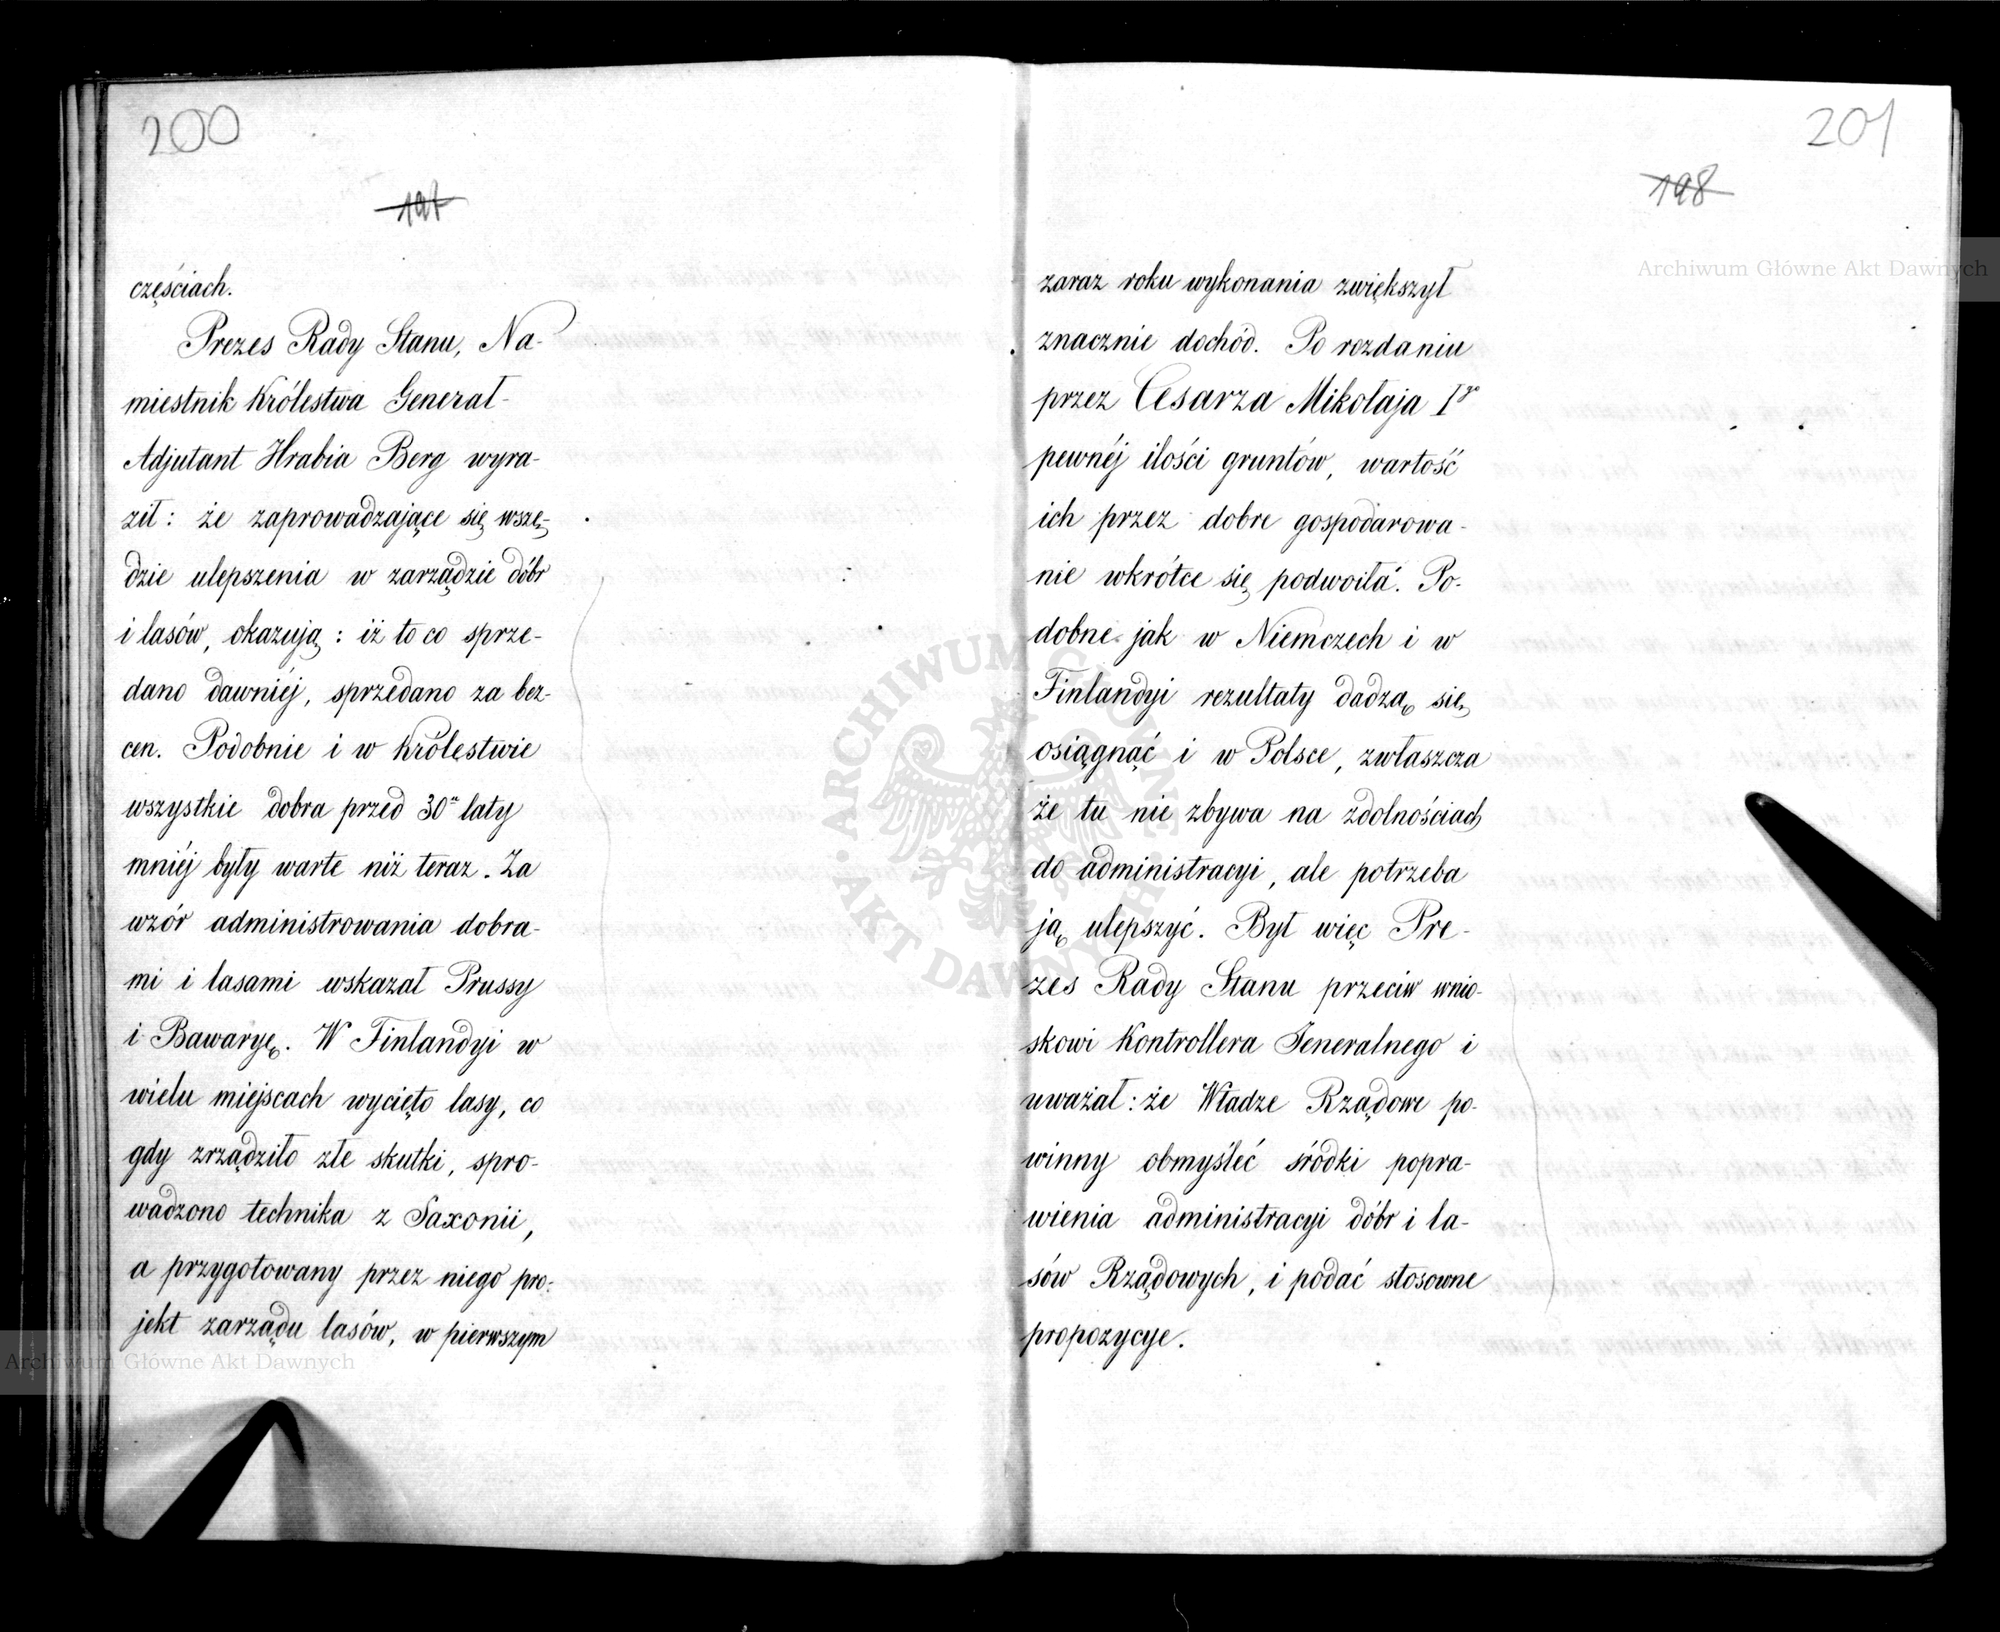 200
197
częściach.
Prezes Rady Stanu, Na-
miestnik Królestwa Generał-
Adjutant Hrabia Berg wyra-
ził: że zaprowadzające się wszę-
dzie ulepszenia w zarządzie dóbr
i lasów, okazują: iż to co sprze-
dano dawniéj, sprzedano za bez-
cen. Podobnie i w Królestwie
wszystkie dobra przed 30 laty
mniéj były warte niż teraz. Za
wzór administrowania dobra-
mi i lasami wskazał Prussy
i Bawaryę. W Finlandyi w
wielu miejscach wycięto lasy, co
gdy zrządziło złe skutki, spro-
wadzono technika z Saxonii,
a przygotowany przez niego pro-
jekt zarządu lasów, w pierwszym
Archiwum Główne Akt Dawnych
201
198
Archiwum Główne Akt Dawnych
zaraz roku wykonania zwiększył
znacznie dochód. Po rozdaniu
przez Cesarza Mikołaja Igo
pewnéj ilości gruntów, wartość
ich przez dobre gospodarowa-
nie wkrótce się podwoiła. Po-
dobne jak w Niemczech i w
Finlandyi rezultaty dadzą się
osiągnąć i w Polsce, zwłaszcza
że tu nie zbywa na zdolnościach
do administracyi, ale potrzeba
ją ulepszyć. Był więc Pre-
zes Rady Stanu przeciw wnio-
skowi Kontrollera Jeneralnego i
uważał: że Władze Rządowe po-
winny obmyśleć środki popra-
wienia administracyi dóbr i la-
sów Rządowych, i podać stosowne
propozycye.
ARCHIWUM GŁÓWNE AKT DAWNYCH